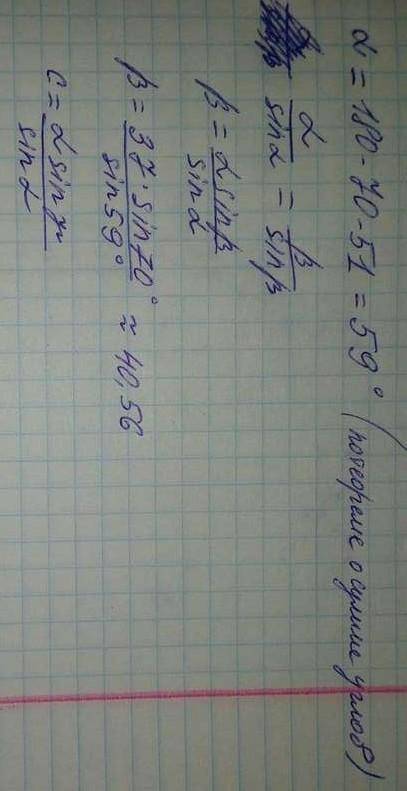 α = 180 - 70 - 51 = 59° (по теореме о сумме углов)
α/sinα = β/sinβ
β = α sinβ/sinα
β = 37 · sin70°/sin59° ≈ 40,56
c = α sinγ/sinα